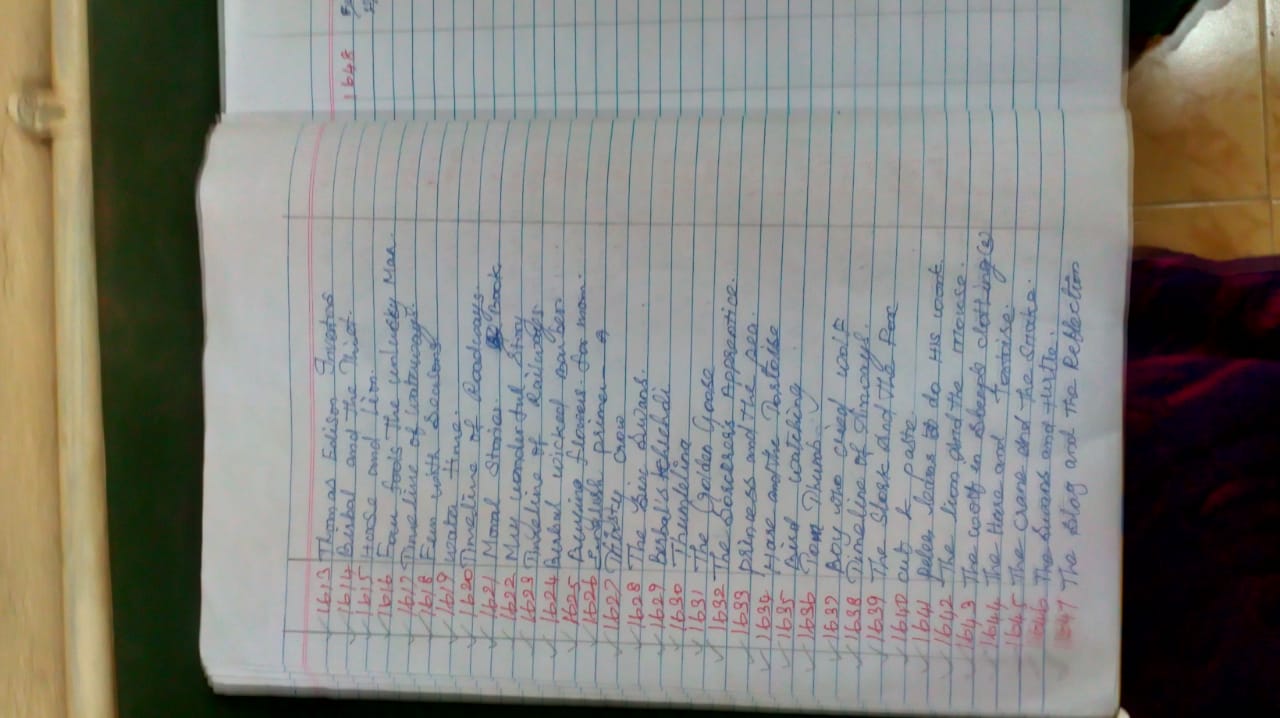 1613 Thomas Edison Invators
1614 Birbal and the Thief.
1615 Horse and Lion.
1616 Four fools The unlucky Man.
1617 Timeline of waterways.
1618 Fun with Seasons
1619 water time.
1620 Timeline of Roadways.
1621 Moral Stories. book.
1622 My wonderful Story
1623 Timeline of Railways
1624 Birbal wicked barber
1625 Buying flowers for mom.
1626 English primer - A
1627 Thirsty crow
1628 The Six Swans.
1629 Birbal's khichdi
1630 Thumbelina
1631 The Golden Goose
1632 The Sorcerer's Apprentice.
1633 princess and the pea.
1634 Hare and the Tortoise
1635 Bird watching
1636 Tom Thumb.
1637 Boy who cried wolf
1638 Timeline of Airways.
1639 The Stork and The Fox
1640 cut & paste
1641 peter learns to do His work
1642 The lion and the mouse.
1643 The wolf in sheeps clothing(2)
1644 The Hare and Tortoise.
1645 The crane and the Snake.
1646 The Swans and turtle.
1647 The Stag and the Reflection
1648